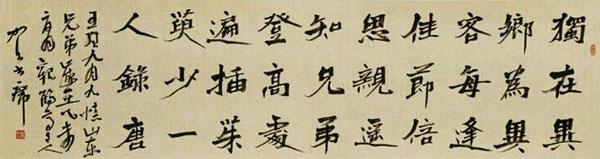 獨在異
鄉為異
客每逢
佳節倍
思親遙
知兄弟
登高處
遍插茱
萸少一
人錄唐
王維九月九憶山東
兄弟歲在